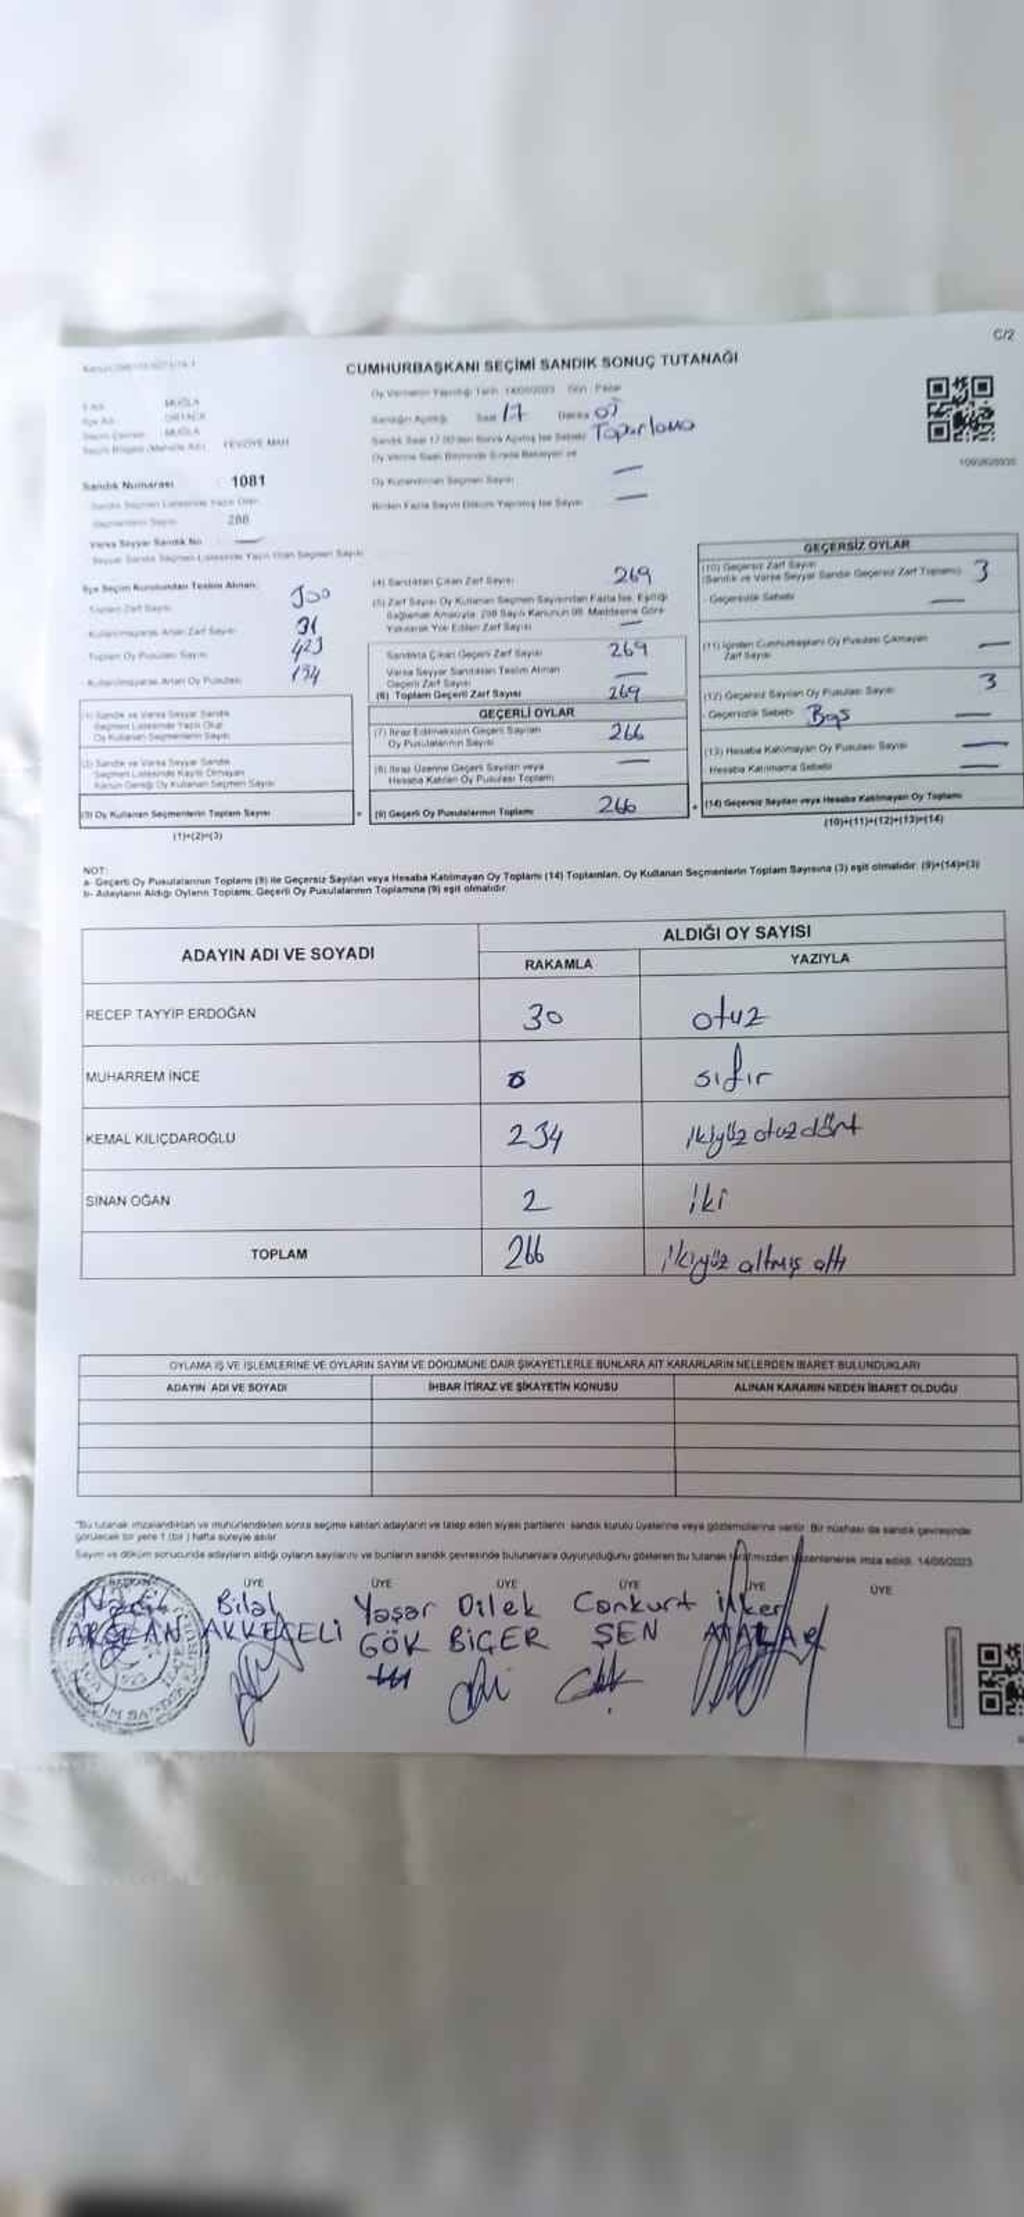 C/2
CUMHURBAŞKANI SEÇİMİ SANDIK SONUÇ TUTANAĞI
Oy Vermenin Yapıldığı Tarih: 14/05/2023 Gün: Pazar
İl Adı MUĞLA
İlçe Adı ORTACA
Seçim Çevresi MUĞLA
Sandığın Açıldığı Saat 17 Dakika 05
Sandık Saat 17.00'den Sonra Açılmış İse Sebebi Toparlama
Oy Verme Saati Bitiminde Sırada Bekleyen ve
Oy Kullandırılan Seçmen Sayısı —
Birden Fazla Sayım Döküm Yapılmış İse Sayısı —
Sandık Numarası 1081
Sandık Seçmen Listesinde Yazılı Olan
Seçmenlerin Sayısı 288
Varsa Seyyar Sandık No —
Seyyar Sandık Seçmen Listesinde Yazılı Olan Seçmen Sayısı
İlçe Seçim Kurulundan Teslim Alınan:
Toplam Zarf Sayısı 300
Kullanılmayarak Artan Zarf Sayısı 31
Toplam Oy Pusulası Sayısı 423
Kullanılmayarak Artan Oy Pusulası 154
(1) Sandık ve Varsa Seyyar Sandık
Seçmen Listesinde Yazılı Olup
Oy Kullanan Seçmenlerin Sayısı
(2) Sandık ve Varsa Seyyar Sandık
Seçmen Listesinde Kayıtlı Olmayan
Kanun Gereği Oy Kullanan Seçmen Sayısı
(3) Oy Kullanan Seçmenlerin Toplam Sayısı
(1)+(2)=(3)
(4) Sandıktan Çıkan Zarf Sayısı 269
(5) Zarf Sayısı Oy Kullanan Seçmen Sayısından Fazla İse, Eşitliği
Sağlamak Amacıyla, 298 Sayılı Kanunun 98. Maddesine Göre
Yakılarak Yok Edilen Zarf Sayısı —
Sandıkta Çıkan Geçerli Zarf Sayısı 269
Varsa Seyyar Sandıktan Teslim Alınan
Geçerli Zarf Sayısı —
(6) Toplam Geçerli Zarf Sayısı 269
GEÇERLİ OYLAR
(7) İtiraz Edilmeksizin Geçerli Sayılan
Oy Pusulalarının Sayısı 266
(8) İtiraz Üzerine Geçerli Sayılan veya
Hesaba Katılan Oy Pusulası Toplamı —
(9) Geçerli Oy Pusulalarının Toplamı 266
GEÇERSİZ OYLAR
(10) Geçersiz Zarf Sayısı
(Sandık ve Varsa Seyyar Sandık Geçersiz Zarf Toplamı) 3
Geçersizlik Sebebi —
(11) İçinden Cumhurbaşkanı Oy Pusulası Çıkmayan
Zarf Sayısı —
(12) Geçersiz Sayılan Oy Pusulası Sayısı 3
Geçersizlik Sebebi Boş —
(13) Hesaba Katılmayan Oy Pusulası Sayısı —
Hesaba Katılmama Sebebi —
(14) Geçersiz Sayılan veya Hesaba Katılmayan Oy Toplamı
(10)+(11)+(12)+(13)=(14)
NOT:
a- Geçerli Oy Pusulalarının Toplamı (9) ile Geçersiz Sayılan veya Hesaba Katılmayan Oy Toplamı (14) Toplamları, Oy Kullanan Seçmenlerin Toplam Sayısına (3) eşit olmalıdır. (9)+(14)=(3)
b- Adayların Aldığı Oyların Toplamı, Geçerli Oy Pusulalarının Toplamına (9) eşit olmalıdır.
ADAYIN ADI VE SOYADI
ALDIĞI OY SAYISI
RAKAMLA YAZIYLA
RECEP TAYYİP ERDOĞAN 30 otuz
MUHARREM İNCE 0 sıfır
KEMAL KILIÇDAROĞLU 234 ikiyüz otuz dört
SİNAN OĞAN 2 iki
TOPLAM 266 ikiyüz altmış altı
OYLAMA İŞ VE İŞLEMLERİNE VE OYLARIN SAYIM VE DÖKÜMÜNE DAİR ŞİKAYETLERLE BUNLARA AİT KARARLARIN NELERDEN İBARET BULUNDUKLARI
ADAYIN ADI VE SOYADI İHBAR İTİRAZ VE ŞİKAYETİN KONUSU ALINAN KARARIN NEDEN İBARET OLDUĞU
"Bu tutanak imzalandıktan ve mühürlendikten sonra seçime katılan adayların ve talep eden siyasi partilerin sandık kurulu üyelerine veya gözlemcilerine verilir. Bir nüshası da sandık çevresinde
görülecek bir yere 1 (bir) hafta süreyle asılır.
Sayım ve döküm sonucunda adayların aldığı oyların sayılarını ve bunların sandık çevresinde bulunanlara duyurulduğunu gösteren bu tutanak tarafımızdan düzenlenerek imza edildi. 14/05/2023
BAŞKAN ÜYE ÜYE ÜYE ÜYE ÜYE ÜYE
Bilal Yaşar Dilek Cankurt İlker
ARSLAN AKKEÇELİ GÖK BİÇER ŞEN